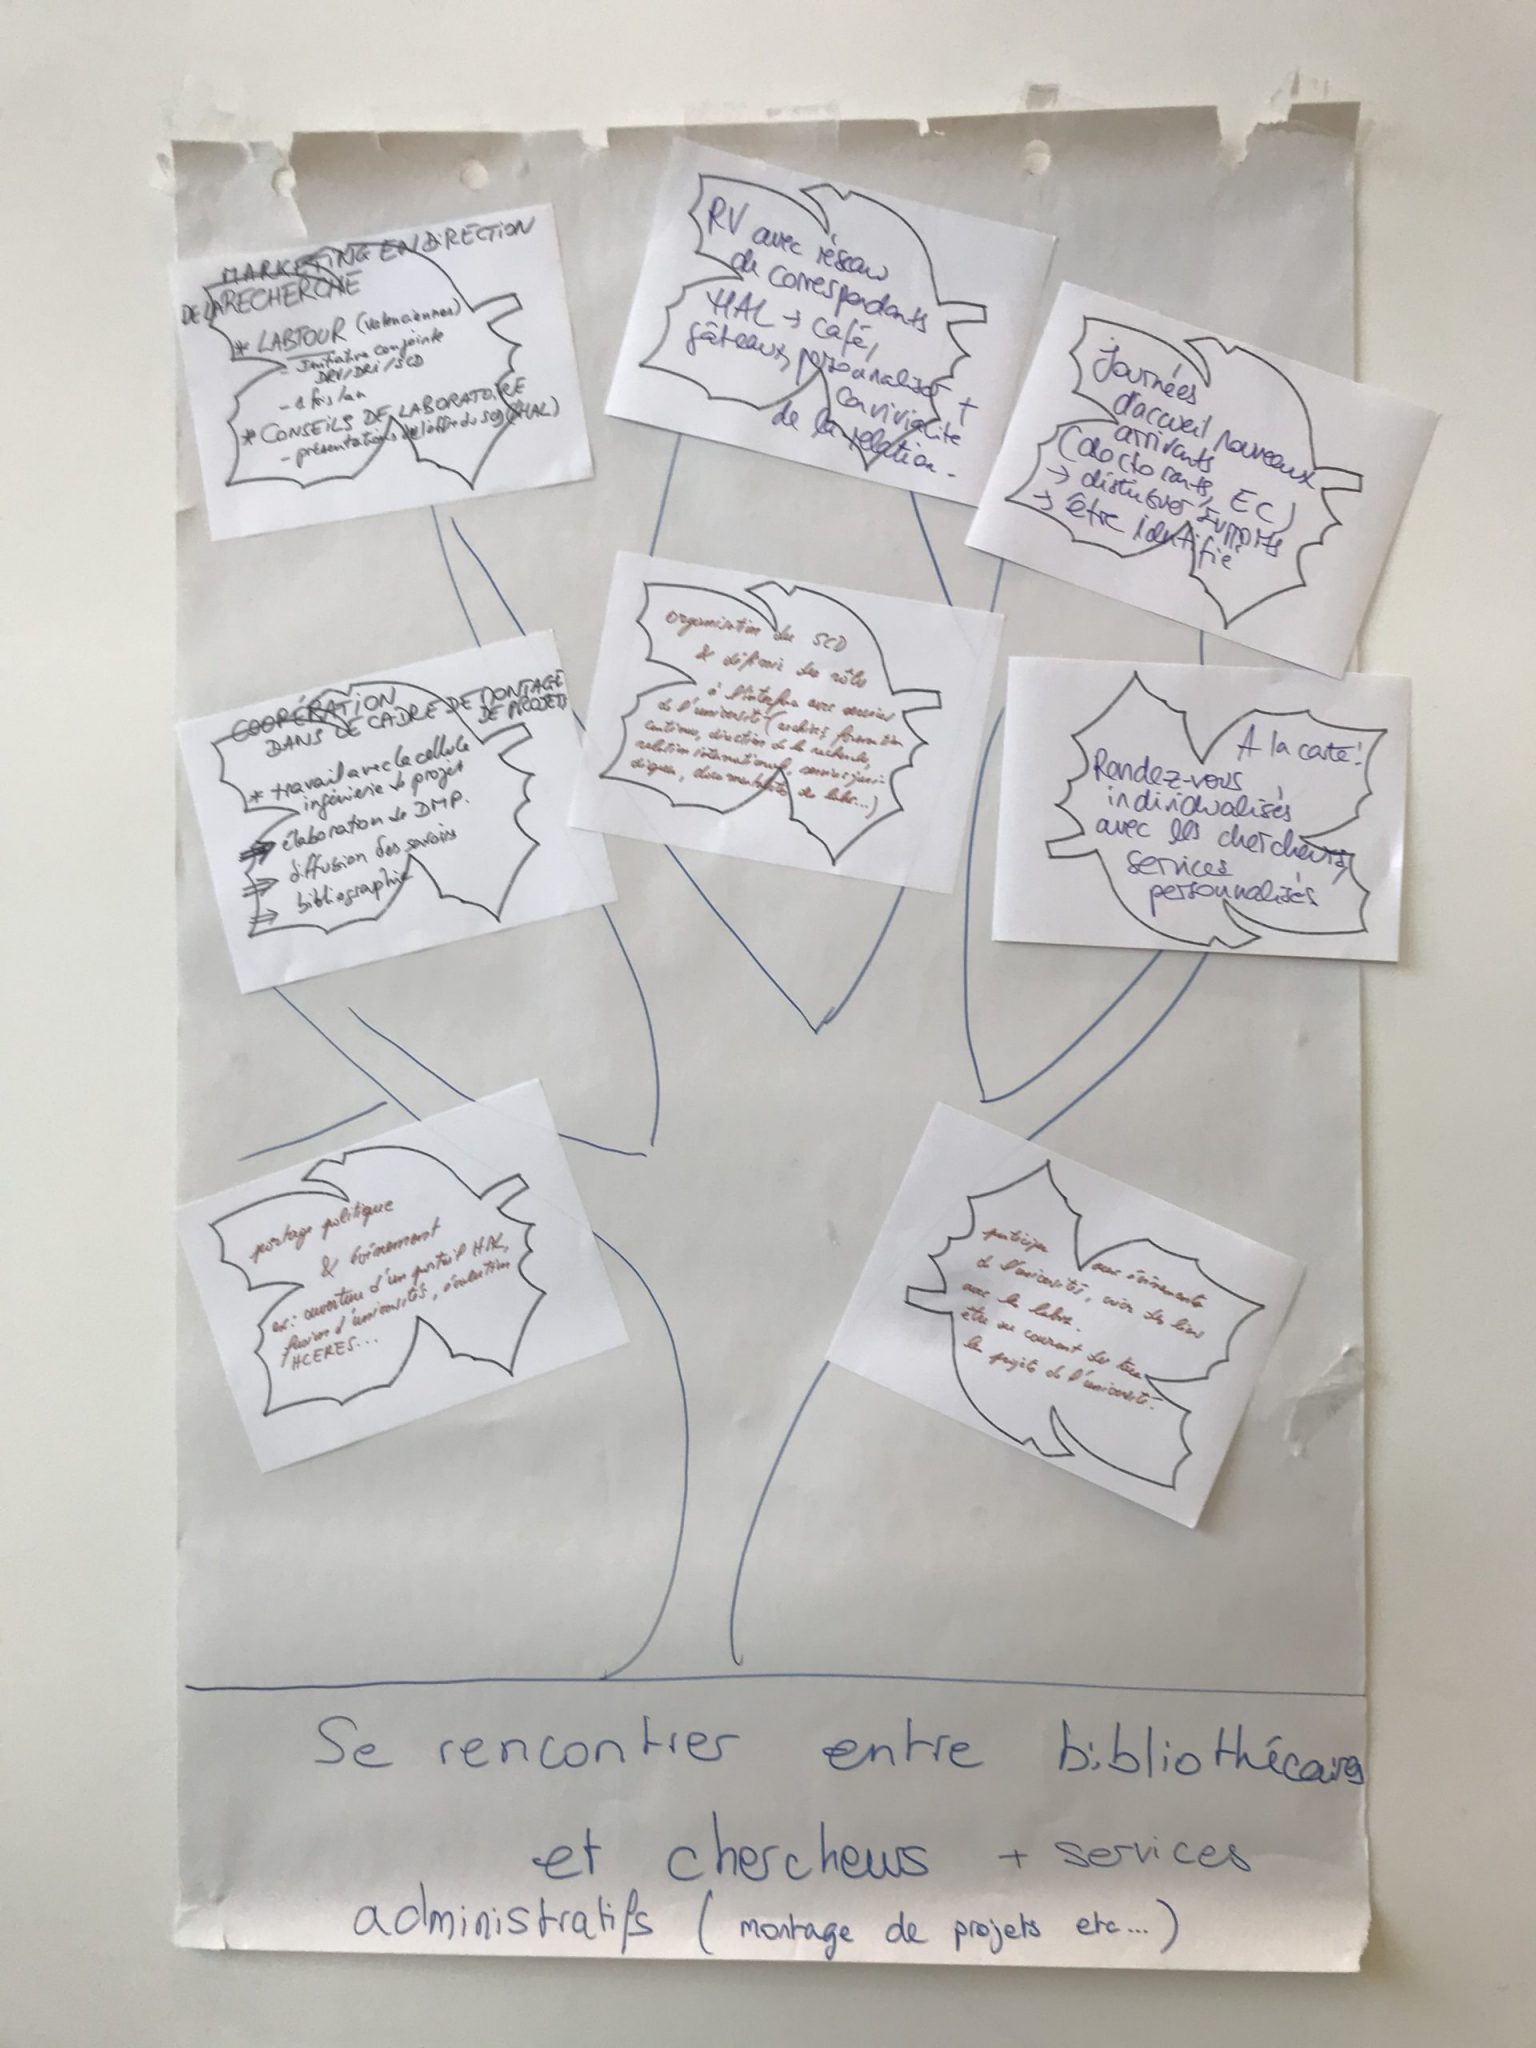 MARKETING EN DIRECTION
DE LA RECHERCHE
* LABTOUR (Valenciennes)
- Initiative conjointe
DRV/DRI/SCD
- 1 fois/an
* CONSEILS DE LABORATOIRE
- présentations de l'offre du SCD (HAL)
RV avec réseau
de correspondants
HAL → café,
gâteaux, personnaliser +
convivialité
de la relation.
Journées
d'accueil nouveaux
arrivants
(doctorants, EC)
→ distribuer supports
→ être identifié
COOPÉRATION
DANS LE CADRE DE MONTAGE
DE PROJETS
* travail avec la cellule
ingénierie de projet
⇒ élaboration de DMP.
⇒ diffusion des savoirs
⇒ bibliographie
Organisation du SCD
& définir des rôles
à l'interface avec services
de l'université (archives, formation
continue, direction de la recherche,
relation internationale, services juri-
diques, documentaliste de labo...)
A la carte!
Rendez-vous
individualisés
avec les chercheurs,
services
personnalisés
portage politique
& évènement
ex: ouverture d'un portail HAL,
fusion d'universités, évaluation
HCERES...
participer aux évènements
de l'université, créer des liens
avec les labos.
être au courant de tous
les projets de l'université.
Se rencontrer entre bibliothécaires
et chercheurs + services
administratifs (montage de projets etc...)